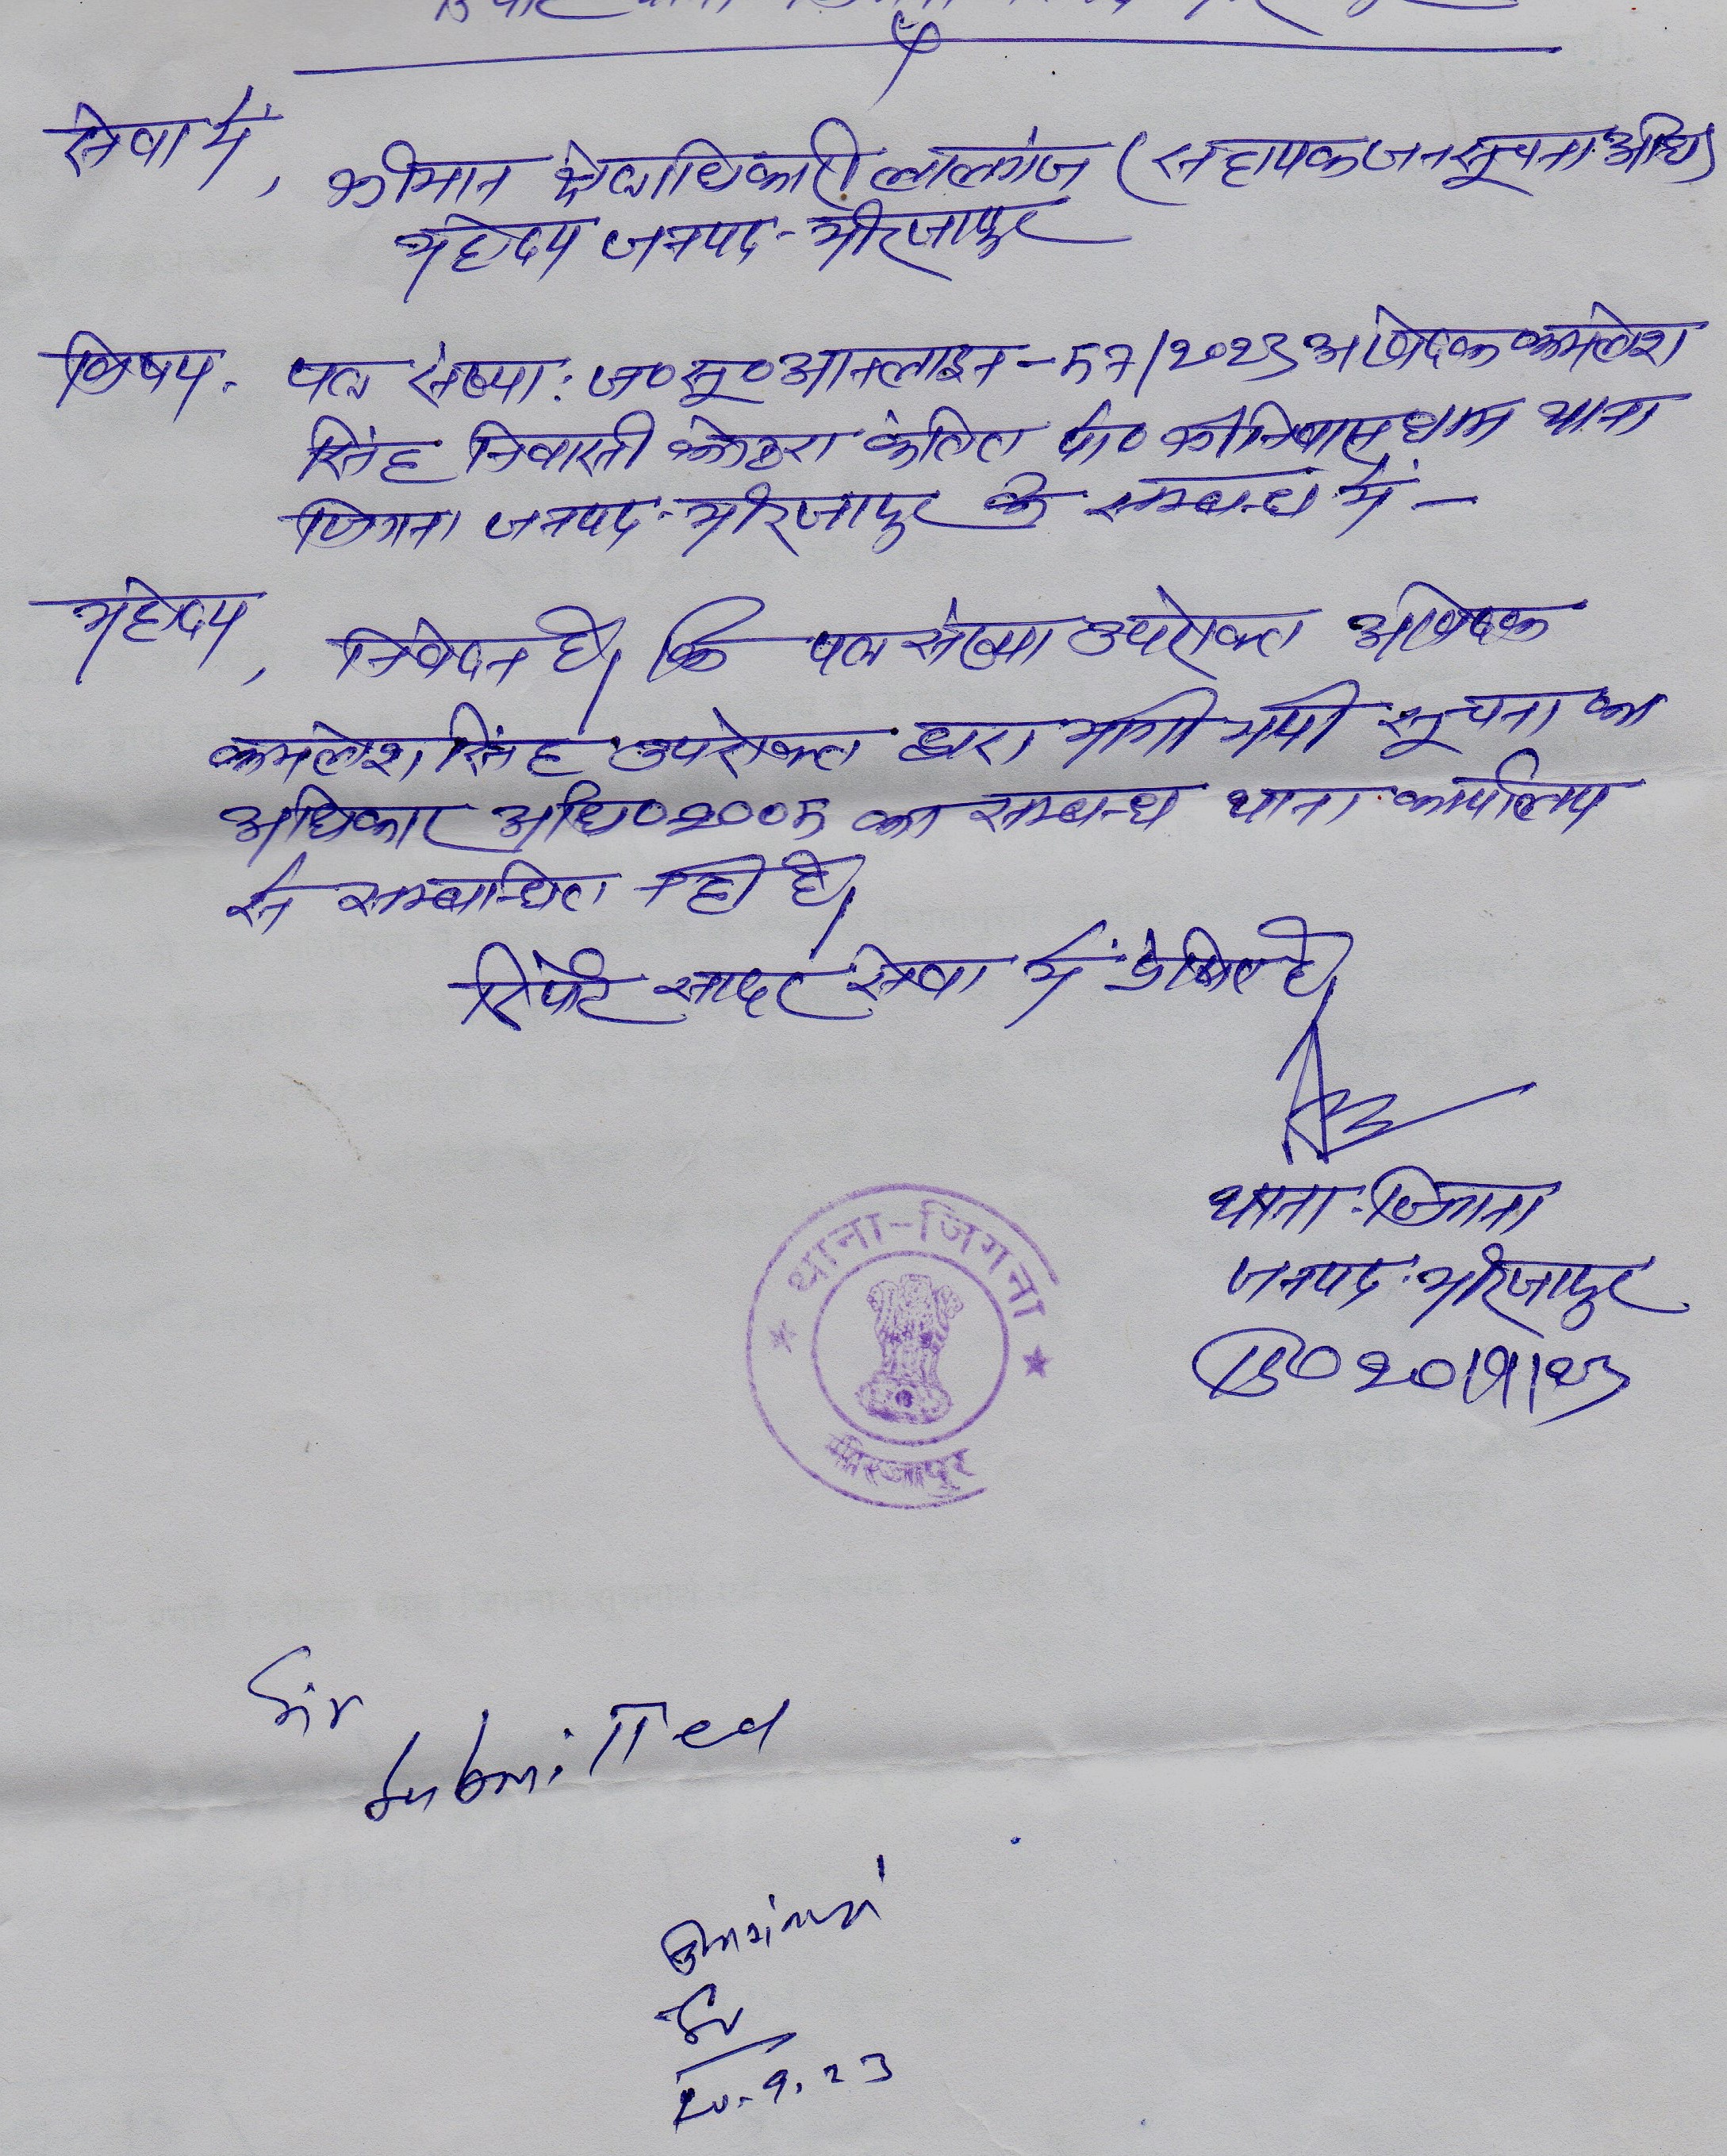 सेवा में,
श्रीमान क्षेत्राधिकारी लालगंज (सहायक जन सूचना अधि)
महोदय जनपद - मीरजापुर
विषय. पत्र संख्या: ज०सू०आनलाइन - 57/2023 आवेदक कमलेश
सिंह निवासी कोठरा कंतित पो० श्रीनिवास धाम थाना
जिगना जनपद - मीरजापुर के सम्बन्ध में -
महोदय,
निवेदन है कि पत्र संख्या उपरोक्त आवेदक
कमलेश सिंह उपरोक्त द्वारा मांगी गयी सूचना का
अधिकार अधि०2005 का सम्बन्ध थाना कार्यालय
से सम्बन्धित नही है।
रिपोर्ट सादर सेवा में प्रेषित है।
थाना - जिगना
जनपद - मीरजापुर
दि० 20/9/23
थाना-जिगना
मीरजापुर
Sir
Submitted
20.9.23